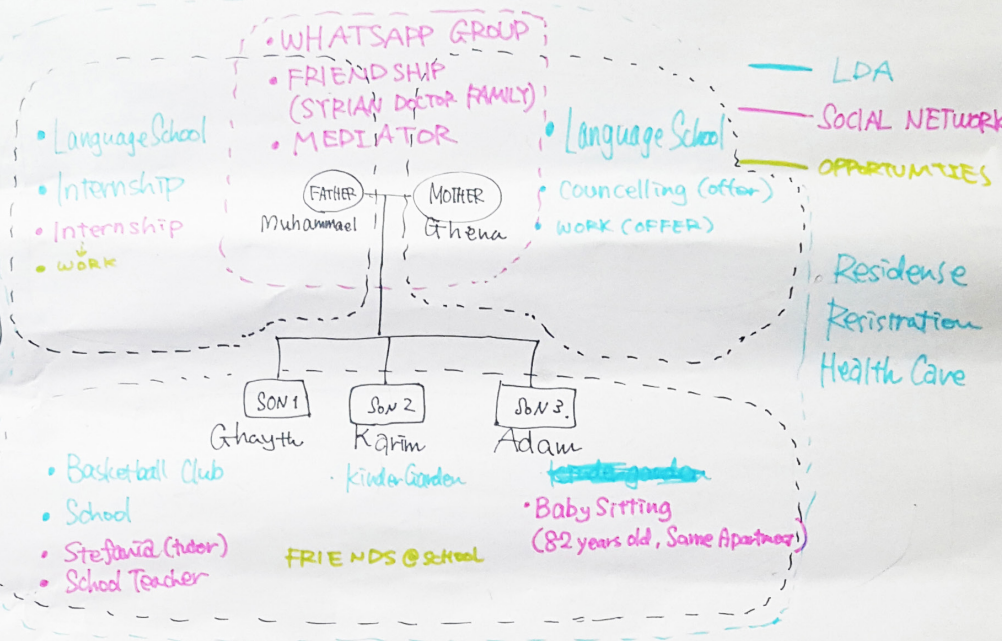 • WHATSAPP GROUP
• FRIENDSHIP
(SYRIAN DOCTOR FAMILY)
• MEDIATOR
LDA
SOCIAL NETWORK
OPPORTUNITIES
• Language School
• Internship
• Internship
• WORK
FATHER
Muhammael
MOTHER
Ghena
• Language School
• Councelling (offer)
• WORK (OFFER)
• Residense
Resistration
Health Care
SON 1
Ghayth
SON 2
Karim
SON 3.
Adam
• Basketball Club
• School
• Stefania (tutor)
• School Teacher
• kinderGarden
FRIENDS @ SCHOOL
• Baby Sitting
(82 years old, Same Apartment)